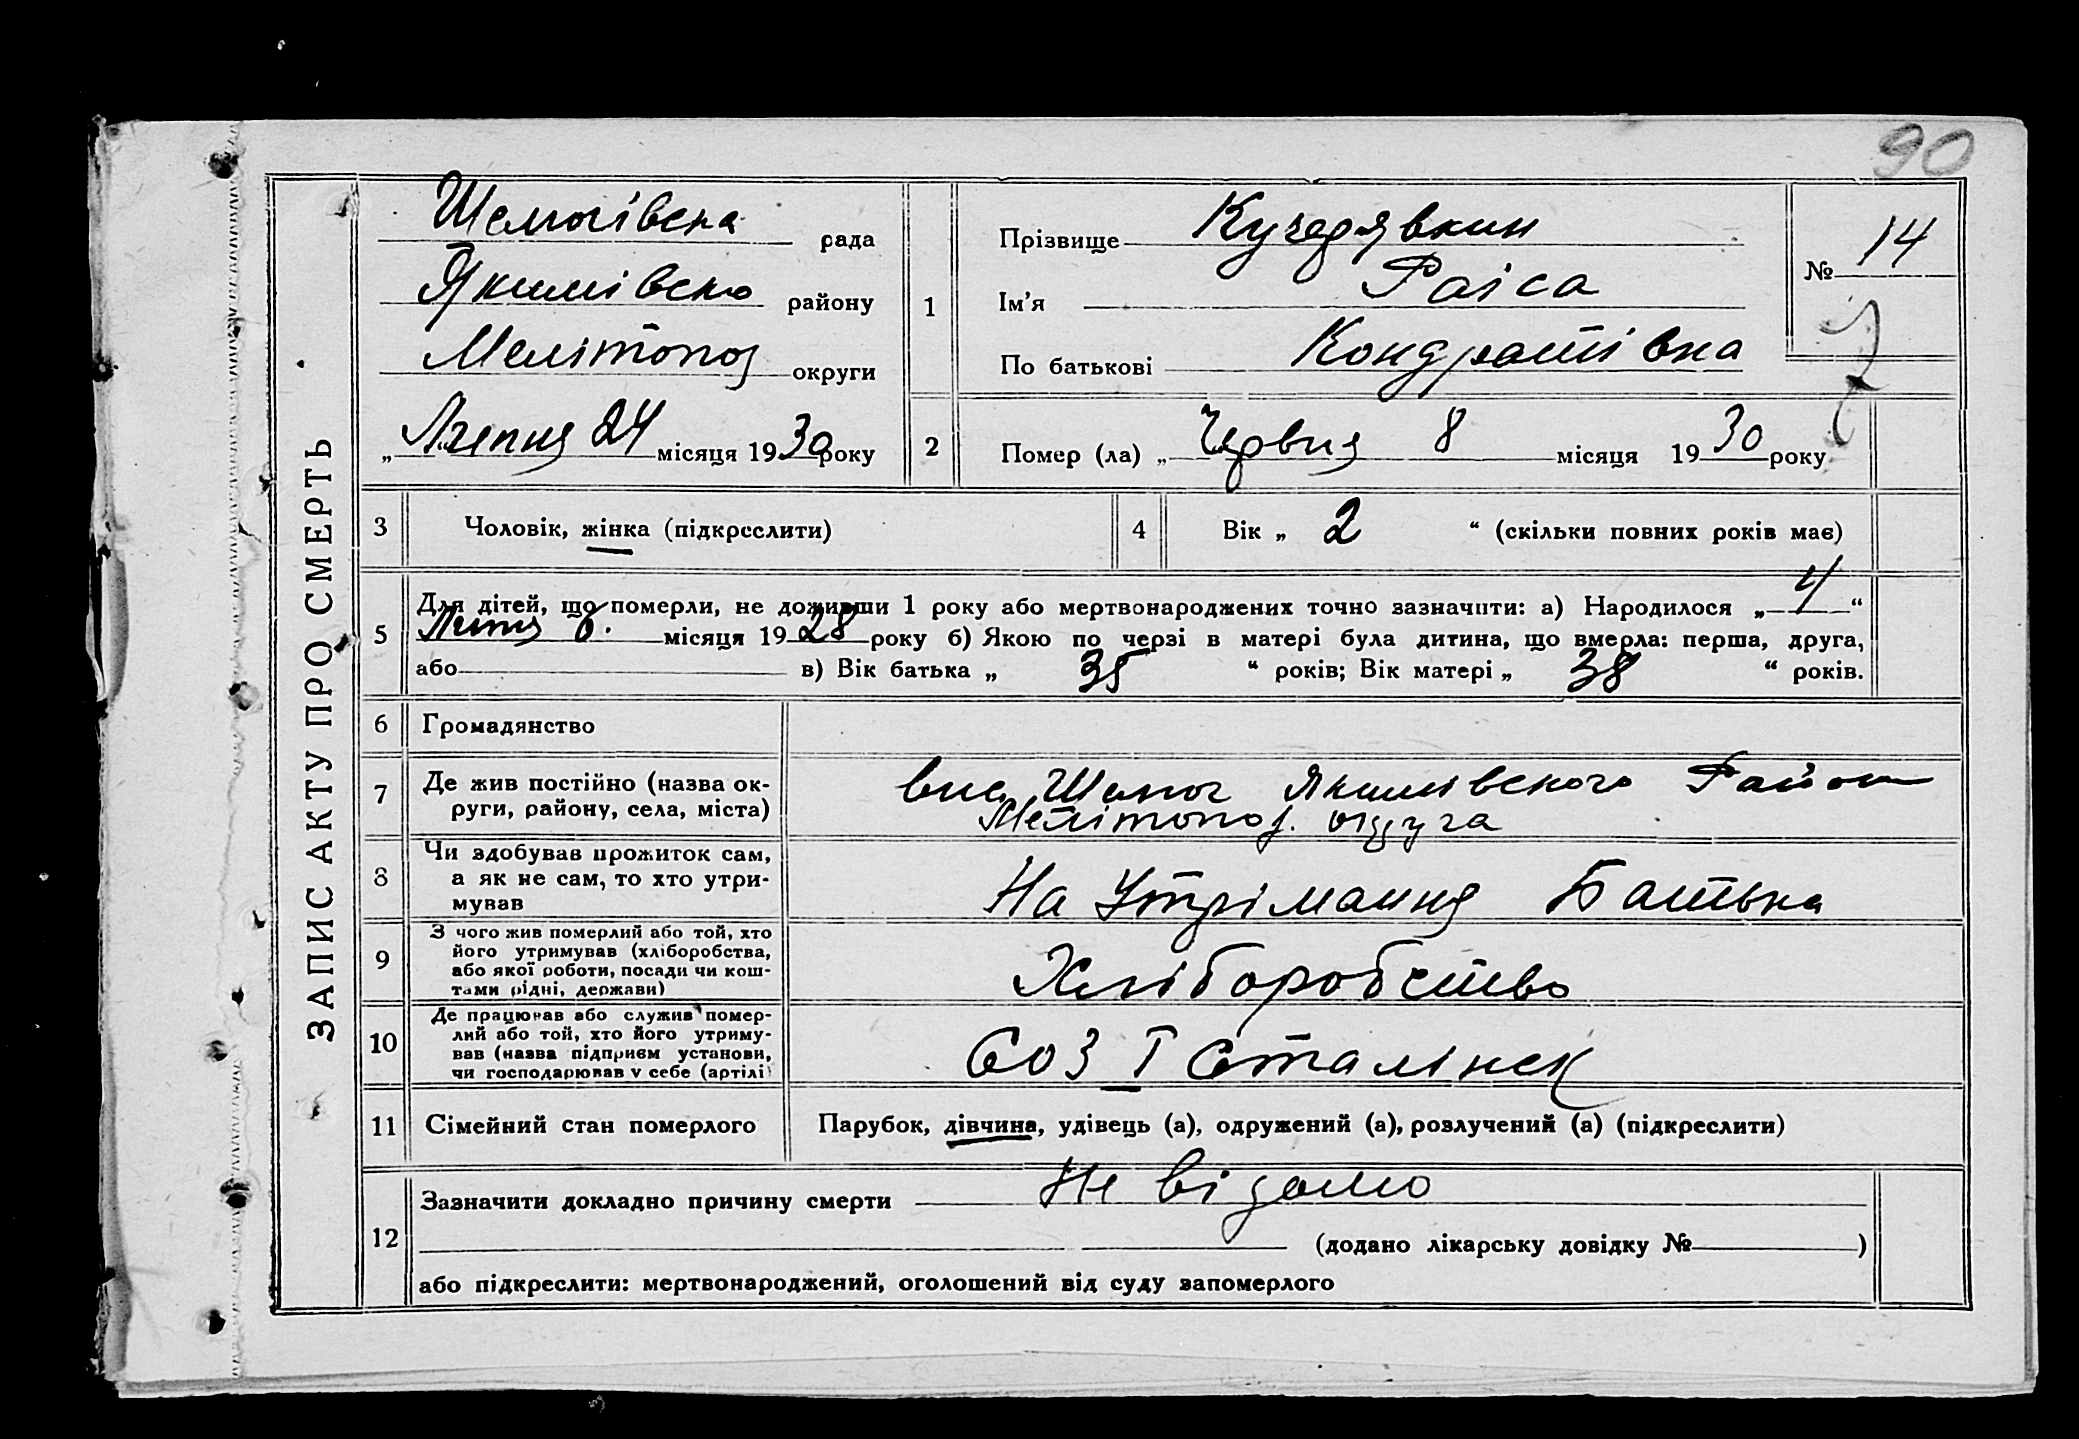 90
ЗАПИС АКТУ ПРО СМЕРТЬ
Шелюгівська рада
Якимівсько району
Мелітопол округи
„ Липня 24 місяця 1930 року
1
Прізвище Кучерявкин
Ім’я Раіса
По батькові Кондратівна
№ 14
2
Помер (ла) „ Червня 8 місяця 1930 року
3 Чоловік, жінка (підкреслити)
4 Вік „ 2 “ (скільки повних років має)
5 Для дітей, що померли, не доживши 1 року або мертвонароджених точно зазначити: а) Народилося „ 4 “
місяця 1928 року б) Якою по черзі в матері була дитина, що вмерла: перша, друга,
або в) Вік батька „ 35 “ років; Вік матері „ 38 “ років.
6 Громадянство
7 Де жив постійно (назва ок-
руги, району, села, міста)
Шелюг Якимівського Район
Мелітопол. округа
8 Чи здобував прожиток сам,
а як не сам, то хто утри-
мував
На Утрімання Батька
9 З чого жив померлий або той, хто
його утримував (хліборобства,
або якої роботи, посади чи кош-
тами рідні, держави)
Хліборобство
10 Де працював або служив помер-
лий або той, хто його утриму-
вав (назва підприєм установи,
чи господарював у себе (артілі)
СОЗ І Сталінск
11 Сімейний стан померлого
Парубок, дівчина, удівець (а), одружений (а), розлучений (а) (підкреслити)
12 Зазначити докладно причину смерти Не відомо
(додано лікарську довідку № )
або підкреслити: мертвонароджений, оголошений від суду запомерлого